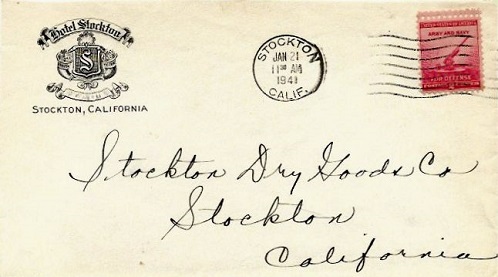 Hotel Stockton
S
STOCKTON, CALIFORNIA
STOCKTON
JAN 21
11 30 AM
1941
CALIF.
ARMY AND NAVY
FOR DEFENSE
Stockton Dry Goods Co
Stockton
California